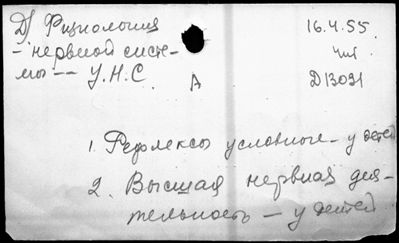 Д) Физиология
– нервной систе-
мы –– У.Н.С. А
16.4.55.
чит
Д13031
1. Рефлексы условные – у детей
2. Высшая нервная дея-
тельность – у детей